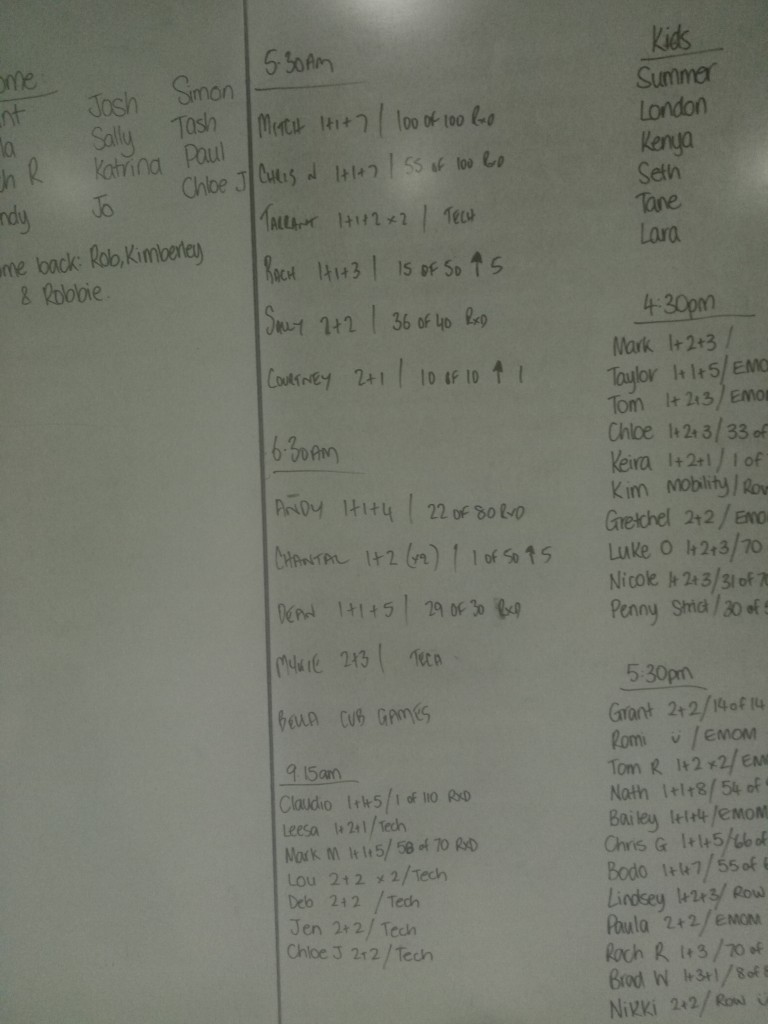 ome
nt Josh Simon
la Sally Tash
ch R Katrina Paul
ndy Jo Chloe J
me back: Rob, Kimberley
& Robbie.
5:30AM
MITCH 1+1+7 | 100 OF 100 RxD
CHRIS N 1+1+7 | 55 OF 100 RxD
TARRANT 1+1+2 x2 | TECH
RACH 1+1+3 | 15 OF 50 ↑ 5
SALLY 2+2 | 36 OF 40 RxD
COURTNEY 2+1 | 10 OF 10 ↑ 1
6:30AM
ANDY 1+1+4 | 22 OF 80 RxD
CHANTAL 1+2 (x2) | 1 OF 50 ↑ 5
DEAN 1+1+5 | 29 OF 30 RxD
2+3 | TECH
BELLA CUB GAMES
9:15am
Claudio 1+1+5/1 of 110 RXD
Leesa 1+2+1/Tech
Mark M 1+1+5/58 of 70 RXD
Lou 2+2 x2/Tech
Deb 2+2 /Tech
Jen 2+2/Tech
Chloe J 2+2/Tech
Kids
Summer
London
Kenya
Seth
Tane
Lara
4:30pm
Mark 1+2+3 /
Taylor 1+1+5/EMO
Tom 1+2+3/EMO
Chloe 1+2+3/33 of
Keira 1+2+1/1 of
Kim Mobility/Row
Gretchel 2+2/EMO
Luke O 1+2+3/70
Nicole 1+2+3/31 of 7
Penny Strict/30 of
5:30pm
Grant 2+2/14 of 14
Romi ü/EMOM
Tom R 1+2 x2/EM
Nath 1+1+8/54 of
Bailey 1+1+4/EMOM
Chris G 1+1+5/66 of
Bodo 1+1+7/55 of
Lindsey 1+2+3/Row
Paula 2+2/EMOM
Rach R 1+3/70 of
Brad W 1+3+1/8 of 8
Nikki 2+2/Row ü